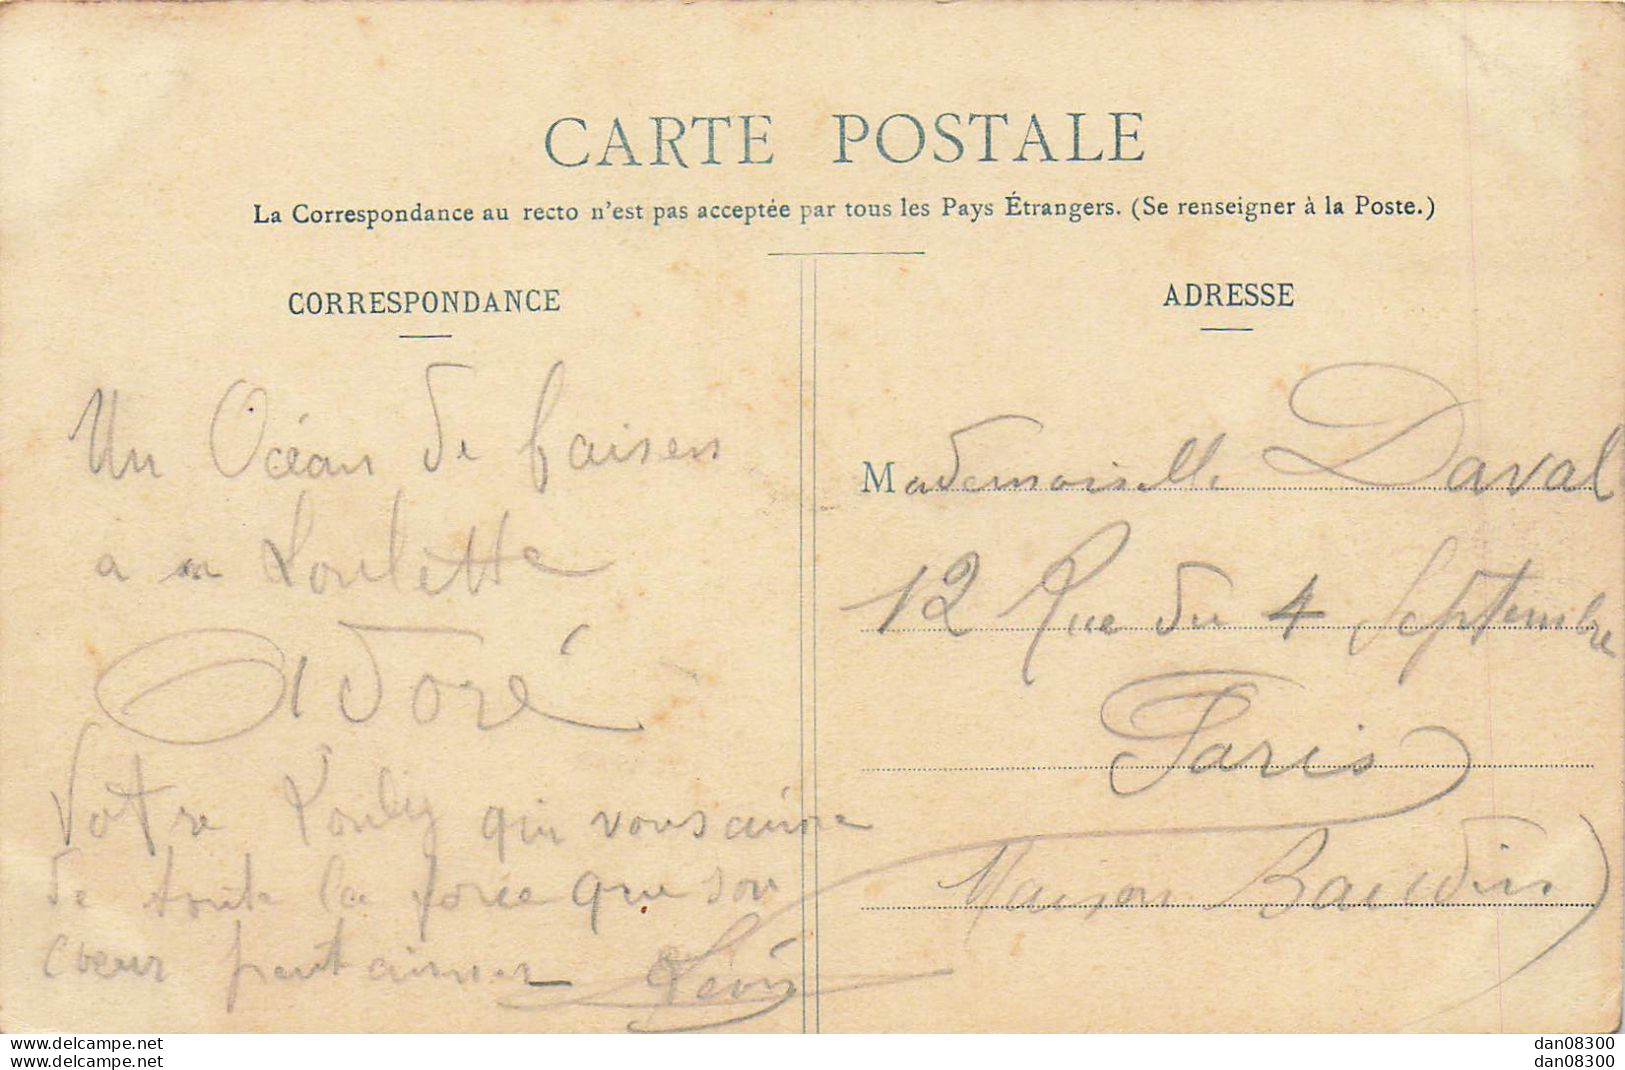 CARTE POSTALE
La Correspondance au recto n'est pas acceptée par tous les Pays Étrangers. (Se renseigner à la Poste.)
CORRESPONDANCE
Un Océan de baisers
a ma Loulette
Adoré
Votre Louly qui vous aime
de toute la force que son
cœur peut aimer
ADRESSE
Mademoiselle Daval
12 Rue du 4 Septembre
Paris
Maison Baudin
www.delcampe.net
www.delcampe.net
dan08300
dan08300